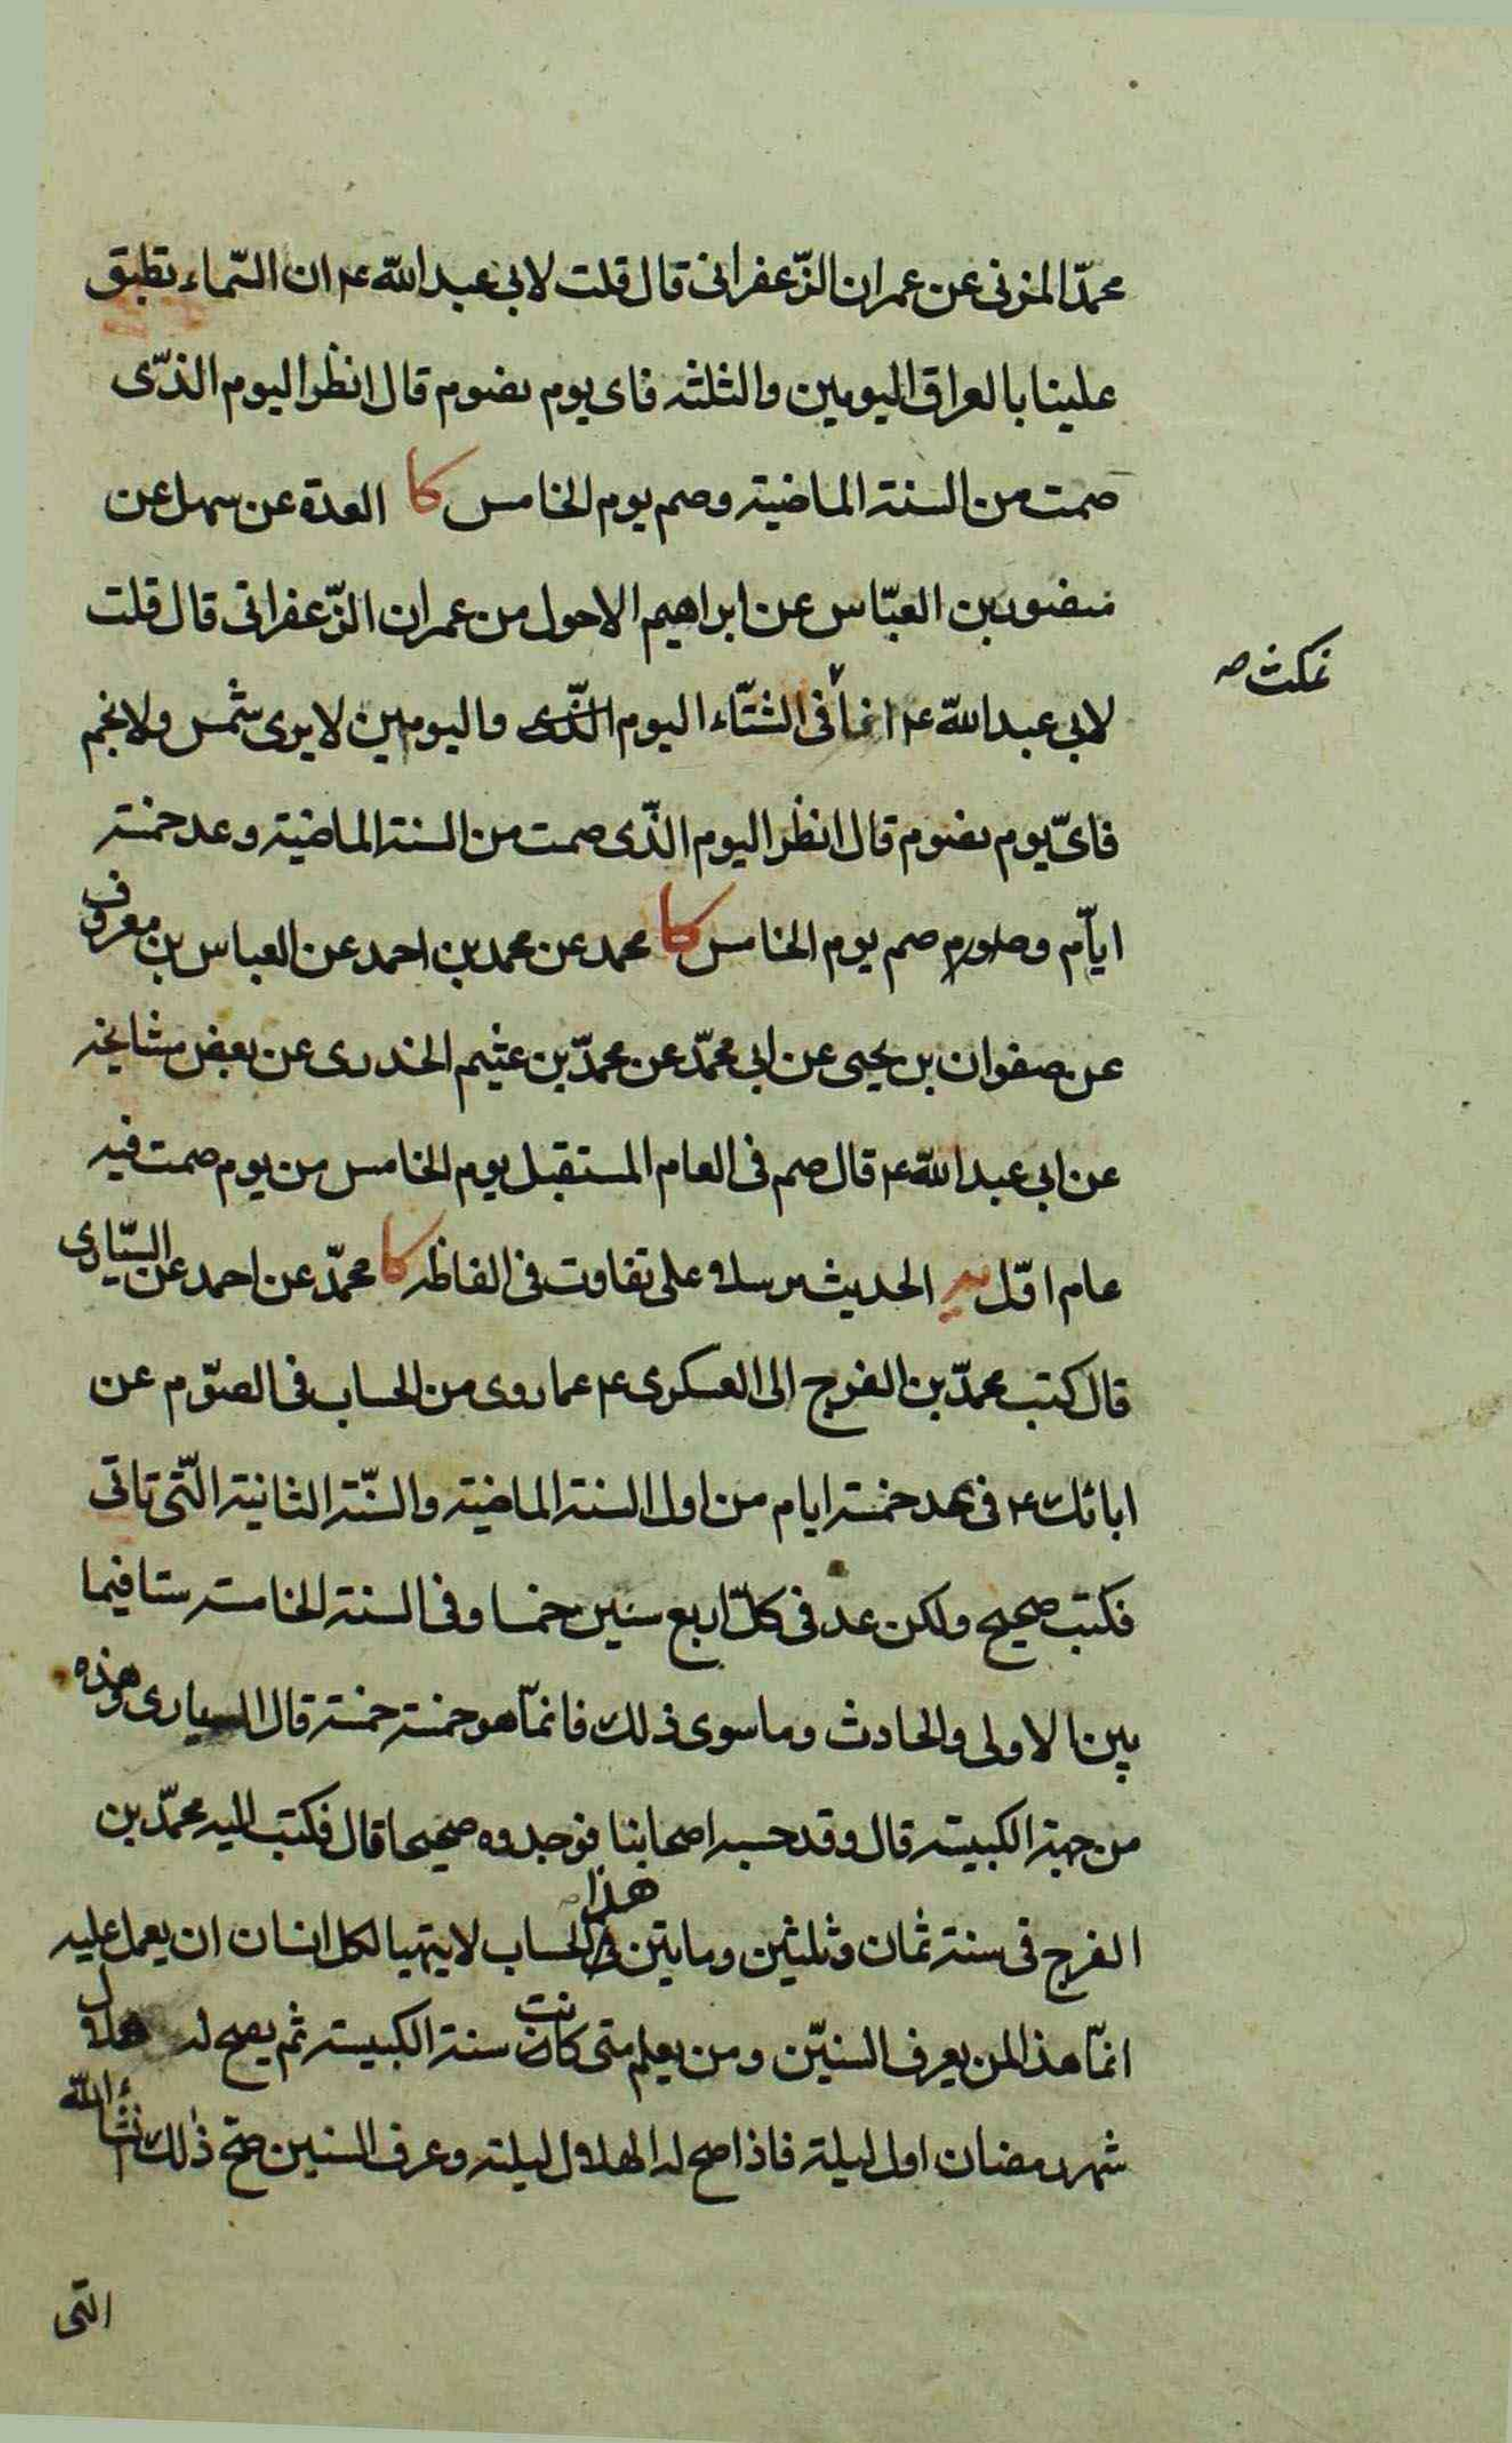 محمّد المزنى عن عمران الزّعفرانى قال قلت لابى عبد الله ع ان السّماء تطبق
علينا بالعراق اليومين والثلثه فاى يوم نصوم قال انظر اليوم الذّى
صمت من السنة الماضية وصم يوم الخامس كا العدة عن سهل عن
منصور بن العبّاس عن ابراهيم الاحول من عمران الزّعفرانى قال قلت
نمكث صح
لابى عبد الله ع انما فى الشتّاء اليوم الذّى واليومين لا يرى شمس ولا نجم
فاىّ يوم نصوم قال انظر اليوم الذّى صمت من السنة الماضية وعد خمسة
ايّام وصم يوم الخامس كا محمد عن محمد بن احمد عن العباس بن معروف
عن صفوان بن يحيى عن ابى محمّد عن محمدّ بن عثيم الخدرى عن بعض مشايخه
عن ابى عبد الله ع قال صم فى العام المستقبل يوم الخامس من يوم صمت فيه
عام اوّل يه الحديث مرسلا على تفاوت فى الفاظه كا محمّد عن احمد عن السيّارى
قال كتب محمدّ بن الفرج الى العسكرى ع عما روى من الحساب فى الصوّم عن
ابائك ع فى عد خمسة ايام من اول السنة الماضية والسّنة الثانية الّتى تاتى
فكتب صحيح ولكن عد فى كلّ اربع سنين خمسا وفى السنة الخامسة ستا فيما
بين الاولى والحادث وما سوى ذلك فانمّا هو خمسة خمسة قال السيارى وهذه
من جهة الكبيسة قال وقد حسبه اصحابنا فوجدوه صحيحا قال فكتب اليه محمّد بن
الفرج فى سنة ثمان وثلثين ومايتين هذا الحساب لا يتهيا لكل انسان ان يعمل عليه
انمّا هذا لمن يعرف السنيّن ومن يعلم متى كانت سنة الكبيسة ثم يصح له هلال
شهر رمضان اول ليلة فاذا صح له الهلال لليلته وعرف السنين صحّ ذلك انشاء الله
التى